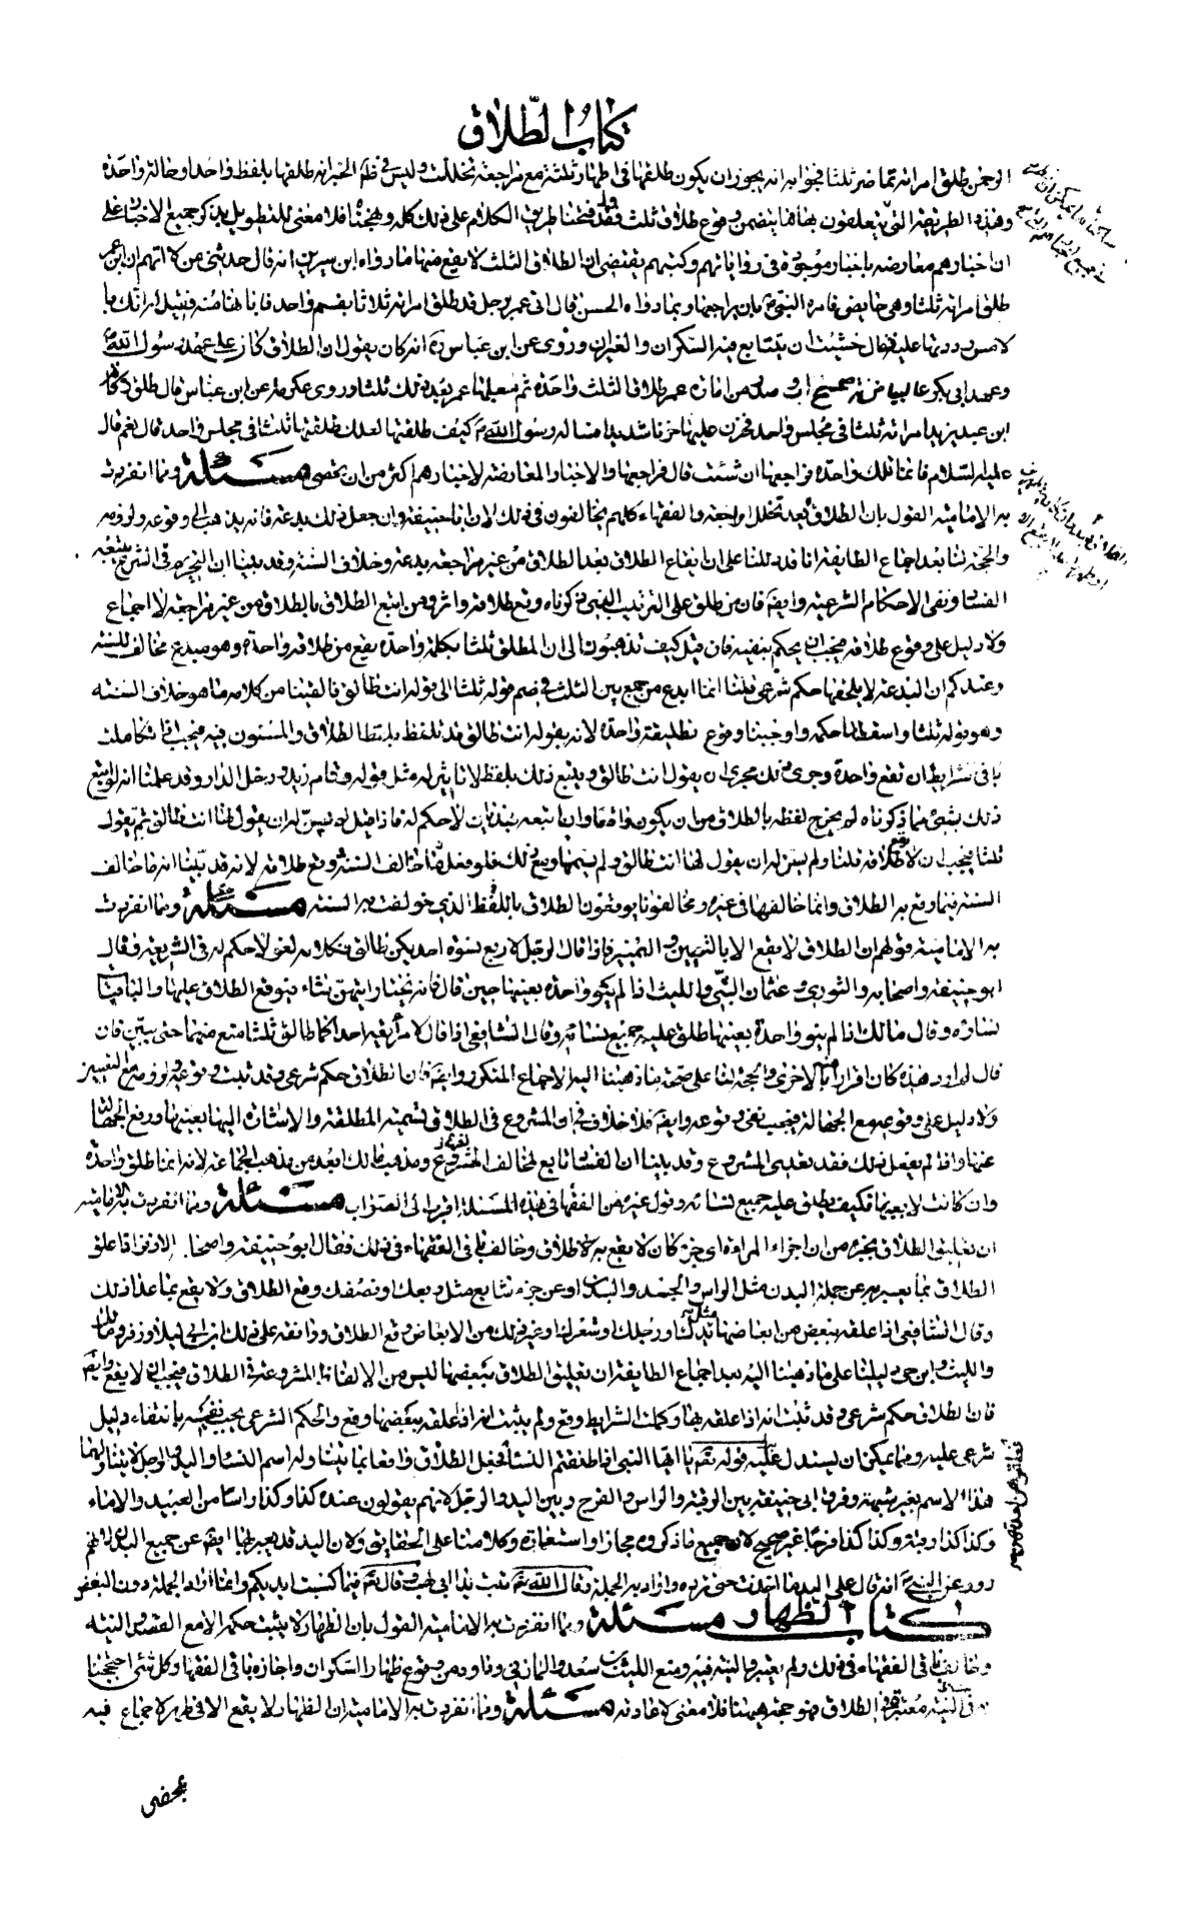 كتاب الطلاق
الرحمن طلق امرأته تماضر ثلثا فجوابه انه يجوز ان يكون طلقها في اطهار ثلثة مع مراجعة تخللت وليس في ظاهر الخبر انه طلقها بلفظ واحد او حالة واحدة
وهذه الطريقة التي يتعلقون بها مما يتضمن وقوع طلاق ثلث وقد فتحنا طريق الكلام على ذلك كله ونهجناه فلا معنى للتطويل بذكر جميع الاخبار على
ان اخبارهم معارضة باخبار موجودة في رواياتهم وكتبهم يقتضي ان الطلاق الثلث لا يقع منها ما رواه ابن سيرين انه قال حدثني من لا اتهم ان ابن عمر
طلق امرأته ثلثا وهي حايض فامره النبي بان يراجعها وبما رواه الحسن قال اتى عمر رجل قد طلق امرأته ثلاثا بفم واحد فابانها منه فقيل له
لامس رددتها عليه فقال خشيت ان يتتابع فيه السكران والغيران وروى عن ابن عباس ره انه كان يقول ان الطلاق كان على عهد رسول الله
وعهد ابي بكر صدر من امارة عمر طلاق الثلث واحدة ثم جعلها عمر بعد ذلك ثلثا وروى عكرمة عن ابن عباس قال طلق ركانة
ابن عبد يزيد امرأته ثلثا في مجلس واحد فحزن عليها حزنا شديدا فسأله رسول الله كيف طلقتها قال طلقتها ثلثا في مجلس واحد قال نعم قال
عليه السلام فانما تلك واحدة فراجعها ان شئت قال فراجعها والاخبار المعارضة لاخبارهم اكثر من ان تحصى مسئلة ومما انفردت
به الامامية القول بان الطلاق بعد تخلل مراجعة والفقهاء كلهم يخالفون في ذلك الا ان ابا حنيفة وان جعل ذلك بدعة فانه يذهب الى وقوعه ولزومه
والحجة لنا بعد اجماع الطايفة انا قد دللنا على ان ايقاع الطلاق بعد الطلاق من غير مراجعة بدعة وخلاف السنة وقد بينا ان التحريم في الشرع يتبعه
الفساد ونفى الاحكام الشرعية وايضا فان من طلق على الترتيب الذي ذكرناه وقع طلاقه واثر ومن اتبع الطلاق بالطلاق من غير مراجعة لا اجماع
ولا دليل على وقوع طلاقه فيجب ان يحكم بنفيه فان قيل كيف تذهبون الى ان المطلق ثلثا بكلمة واحدة يقع من طلاقه واحدة وهو مبدع مخالف للسنة
وعندكم ان البدعة لا يلحقها حكم شرعي قلنا انما ابدع من جمع بين الثلث في ضم قوله ثلثا الى قوله انت طالق فالغينا من كلامه ما هو خلاف السنة
وهو قوله ثلثا واسقطنا حكمه واوجبنا وقوع تطليقة واحدة لانه بقوله انت طالق قد تلفظ بلفظ الطلاق والمسنون فيه فيجب اذا تكاملت
باقي شرايطه ان تقع واحدة وجرى ذلك مجرى ان يقول انت طالق ويتبع ذلك بلفظ لا تاثير له مثل قوله وقام زيد ودخل الدار وقد علمنا انه لو اتبع
ذلك بشئ مما ذكرناه لم يخرج لفظه بالطلاق من ان يكون واقعا وان اتبعه بهذيان لا حكم له فاذا قيل اليس له ان يقول لها انت طالق ثم يقول
ثلثا فيجب ان لا يقع طلاقه قلنا ولم يسن له ان يقول لها انت طالق ويشتمها ومع ذلك فلو فعل خالف السنة ووقع طلاقه لانه قد بينا انه ما خالف
السنة فيما وقع به الطلاق وانما خالفها في غيره ومخالفونا يوقعون الطلاق باللفظ الذي خولفت به السنة مسئلة ومما انفردت
به الامامية قولهم ان الطلاق لا يقع الا بالتعيين والتمييز فاذا قال الرجل لاربع نسوة احديكن طالق فكلامه لغو لا حكم له في الشريعة وقال
ابو حنيفة واصحابه والثوري وعثمان البتي والليث اذا لم ينو واحدة بعينها حين قال فانه يختار ايتهن شاء فيوقع الطلاق عليها والباقيات
نساؤه وقال مالك اذا لم ينو واحدة بعينها طلق عليه جميع نسائه وقال الشافعي اذا قال لامرأتيه احداكما طالق ثلثا منع منهما حتى يبين فان
قال لم ارد هذه كان اقرارا منه بالاخرى والحجة لنا على صحة ما ذهبنا اليه الاجماع المتكرر وايضا فان الطلاق حكم شرعي وقد ثبت وقوعه ولزومه مع التعيين
ولا دليل على وقوعه مع الجهالة فيجب نفي وقوعه وايضا فلا خلاف في ان المشروع في الطلاق تسمية المطلقة والاشارة اليها بعينها ورفع الجهالة
عنها واذا لم يفعل ذلك فقد تعدى المشروع وقد بينا ان الفساد تابع لمخالف المشروع ومذهب مالك ابعد من مذهب الجماعة لانه انما طلق واحدة
وان كانت لا بعينها فكيف يطلق عليه جميع نسائه وقول غيره من الفقهاء في هذه المسئلة اقرب الى الصواب مسئلة ومما انفردت به الامامية
ان تعليق الطلاق بجزء من اجزاء المرأة اي جزء كان لا يقع به طلاق وخالف باقي الفقهاء في ذلك فقال ابو حنيفة واصحابه الا زفر اذا علق
الطلاق بما يعبر به عن جملة البدن مثل الراس والجسد والبدن او عن جزء شايع مثل ربعك او نصفك وقع الطلاق ولا يقع بما عدا ذلك
وقال الشافعي اذا علقه ببعض من ابعاضها مثل يدك او رجلك او شعرك او غير ذلك من الابعاض وقع الطلاق ووافقه على ذلك ابن ابي ليلى وزفر ومالك
والليث وابن حي دليلنا على ما ذهبنا اليه بعد اجماع الطايفة ان تعليق الطلاق ببعضها ليس من الالفاظ المشروعة في الطلاق فيجب ان لا يقع وايضا
فان الطلاق حكم شرعي وقد ثبت انه اذا علقه بها وكملت الشرايط وقع ولم يثبت انه اذا علقه ببعضها وقع والحكم الشرعي يجب نفيه بانتفاء دليل
شرعي عليه ومما يمكن ان يستدل عليه قوله تعالى يا ايها النبي اذا طلقتم النساء فجعل الطلاق واقعا بما يتناوله اسم النساء واليد والرجل لا يتناولهما
هذا الاسم بغير شبهة وفرق ابي حنيفة بين الرقبة والراس والفرج وبين اليد والرجل لانهم يقولون عنده كذا وكذا راسا من العبيد والاماء
وكذا كذا رقبة وكذا كذا فرجا غير صحيح لان جميع ما ذكروه مجاز واستعارة وكلامنا على الحقايق ولان اليد قد يعبر بها ايضا عن جميع البدن لانهم
رووا عن النبي انه قال على اليد ما اخذت حتى ترده واراد به الجملة وقال الله تعالى تبت يدا ابي لهب وقال تعالى فبما كسبت ايديكم وانما اراد الجملة دون البعض
كتاب الظهار مسئلة ومما انفردت به الامامية القول بان الظهار لا يثبت حكمه الا مع القصد والنية
وخالف باقي الفقهاء في ذلك ولم يعتبروا النية فيه ومنع الليث بن سعد والمزني وداود من وقوع ظهار السكران واجازه باقي الفقهاء وكل شئ احتججنا
به في النية معتبرة في الطلاق فهو حجة ههنا فلا معنى لاعادته مسئلة ومما انفردت به الامامية ان الظهار لا يقع الا في طهر لا جماع فيه